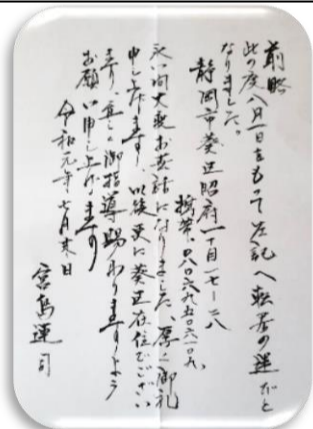 前略
此の度八月一日をもって左記へ転居の運びと
なりました。
静岡市葵区昭府一丁目一七ー二八
携帯
永い間大変お世話になりました、厚く御礼
申し上げます、以後更に葵区在住でござい
ます、宜しく御指導賜わりますよう
お願い申し上げます
令和元年七月末日
宮島運司